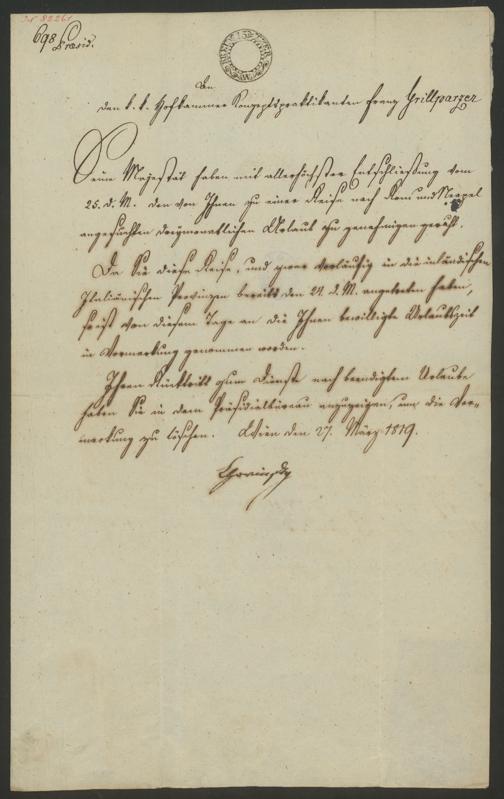 IN 82261
698/Præsid.
An
den k. k. Hofkammer Konzeptspraktikanten Franz Grillparzer
Seine Majestät haben mit allerhöchster Entschließung vom
25. d. M. den von Ihnen zu einer Reise nach Rom und Neapel
angesuchten dreymonatlichen Urlaub zu genehmigen geruht.
Da Sie diese Reise, und zwar vorläufig in die inländischen
Italiänischen Provinzen bereits den 24. d. M. angetreten haben,
so ist von diesem Tage an die Ihnen bewilligte Urlaubszeit
in Vormerkung genommen worden.
Ihren Rücktritt zum Dienste nach beendigtem Urlaube
haben Sie in dem Präsidialbüreau anzuzeigen, um die Vor-
merkung zu löschen. Wien den 27. März 1819.
Chorinsky